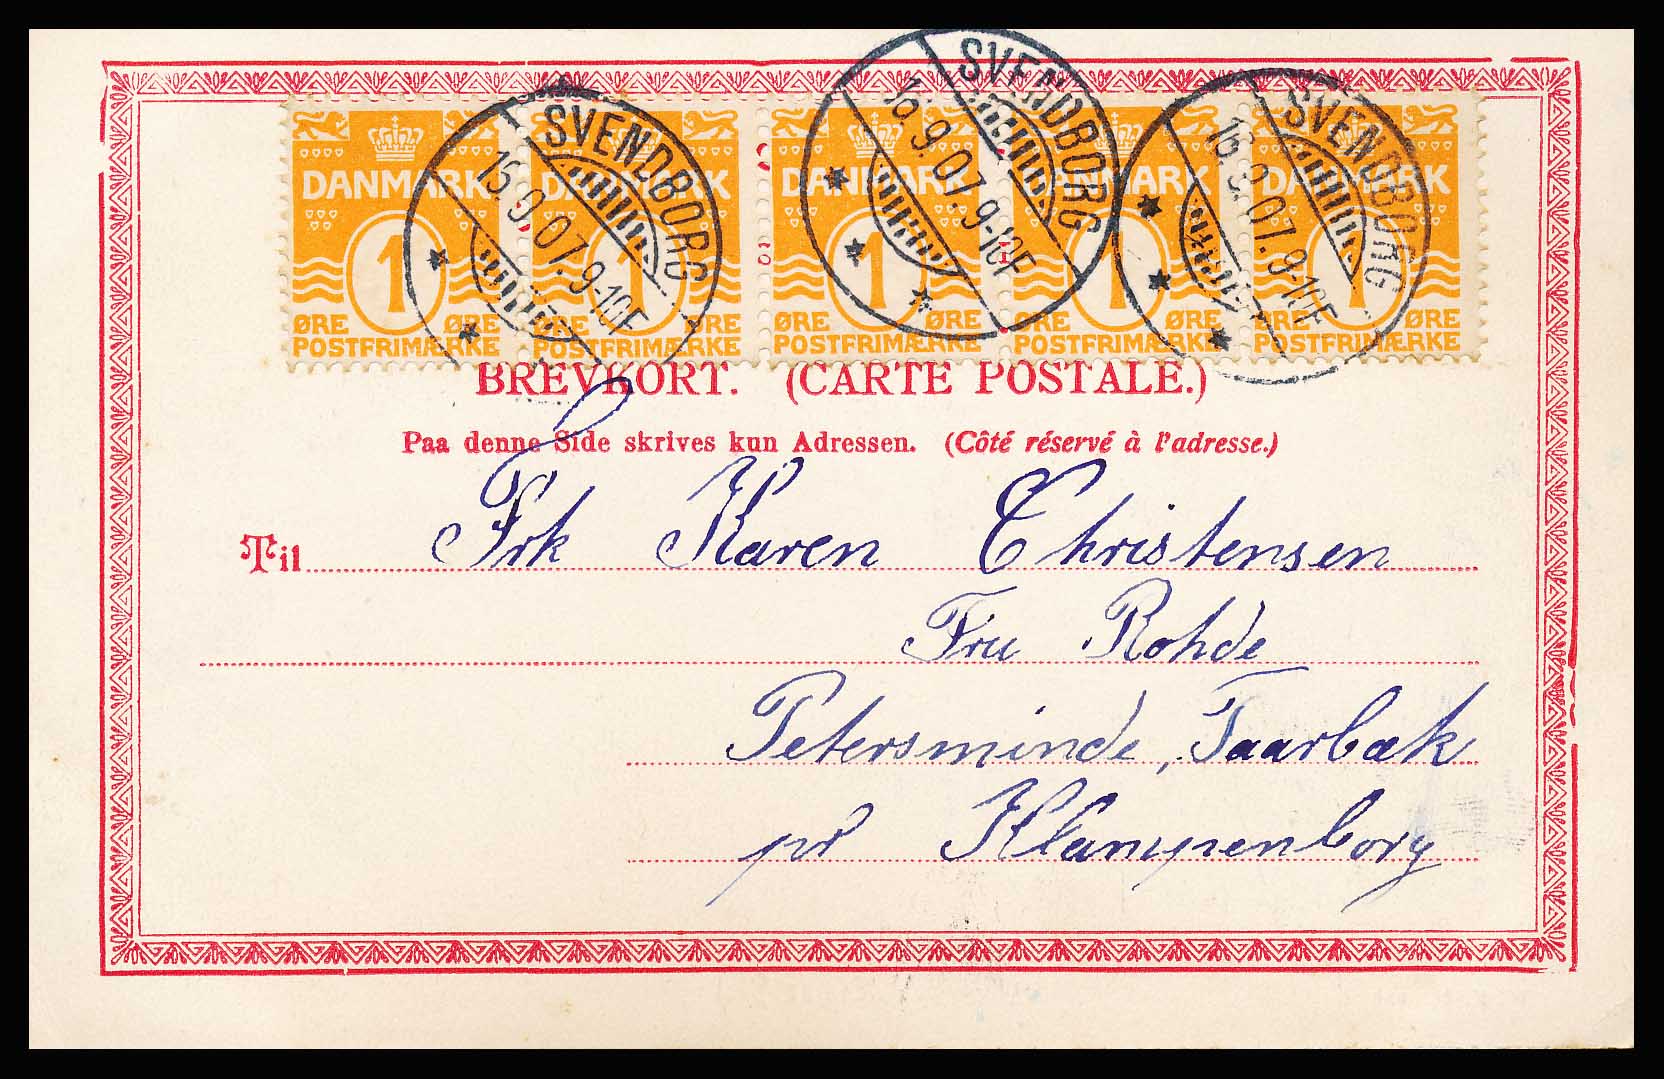 DANMARK 1 ØRE ØRE POSTFRIMÆRKE
DANMARK 1 ØRE ØRE POSTFRIMÆRKE
DANMARK 1 ØRE ØRE POSTFRIMÆRKE
DANMARK 1 ØRE ØRE POSTFRIMÆRKE
DANMARK 1 ØRE ØRE POSTFRIMÆRKE
SVENDBORG
9.07. 9-10F
SVENDBORG
16.9.07. 9-10F
SVENDBORG
16.9.07. 9-10F
BREVKORT. (CARTE POSTALE.)
Paa denne Side skrives kun Adressen. (Côté réservé à l'adresse.)
Til Frk Karen Christensen
Fru Rohde
Petersminde, Taarbæk
pr Klampenborg